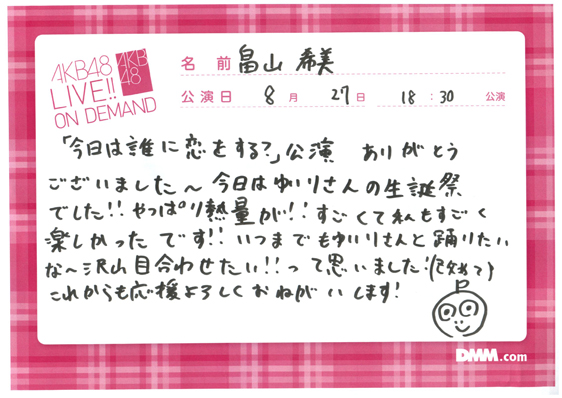 AKB48
LIVE!!
ON DEMAND
AKB
48
名 前 畠山 希美
公演日 8 月 27 日 18 : 30 公演
「今日は誰に恋をする?」公演 ありがとう
ございました〜 今日はゆいりさんの生誕祭
でした!! やっぱり熱量が!! すごくて私もすごく
楽しかったです!! いつまでもゆいりさんと踊りたい
な〜沢山目合わせたい!!って思いました!
これからも応援よろしくおねがいします!
DMM.com